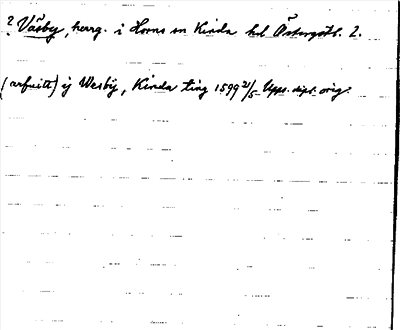 ? Väsby, herrg. i Horns sn Kinda hd Östergötl. l.
(arfuitt) ij Wesbÿ, Kinda ting 1599 21/5 Upps. dipl. orig.